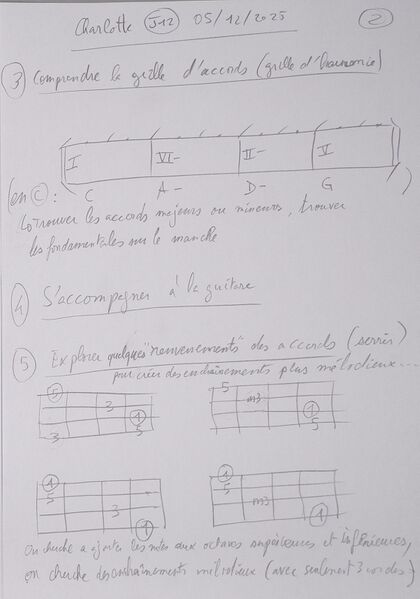 Charlotte J12 05/12/2025 2
3 Comprendre la grille d'accords (grille d'harmonie)
I VI- II- V
(en C : C A- D- G )
↳ Trouver les accords majeurs ou mineurs, trouver
les fondamentales sur le manche
4 S'accompagner à la guitare
5 Explorer quelques "renversements" des accords (serrés)
pour créer des enchaînements plus mélodieux...
5 3 1 3 5
5 m3 1 5
1 5 3 1
1 5 m3 1
on cherche à ajouter les notes aux octaves supérieures et inférieures,
on cherche des enchaînements mélodieux (avec seulement 3 cordes)